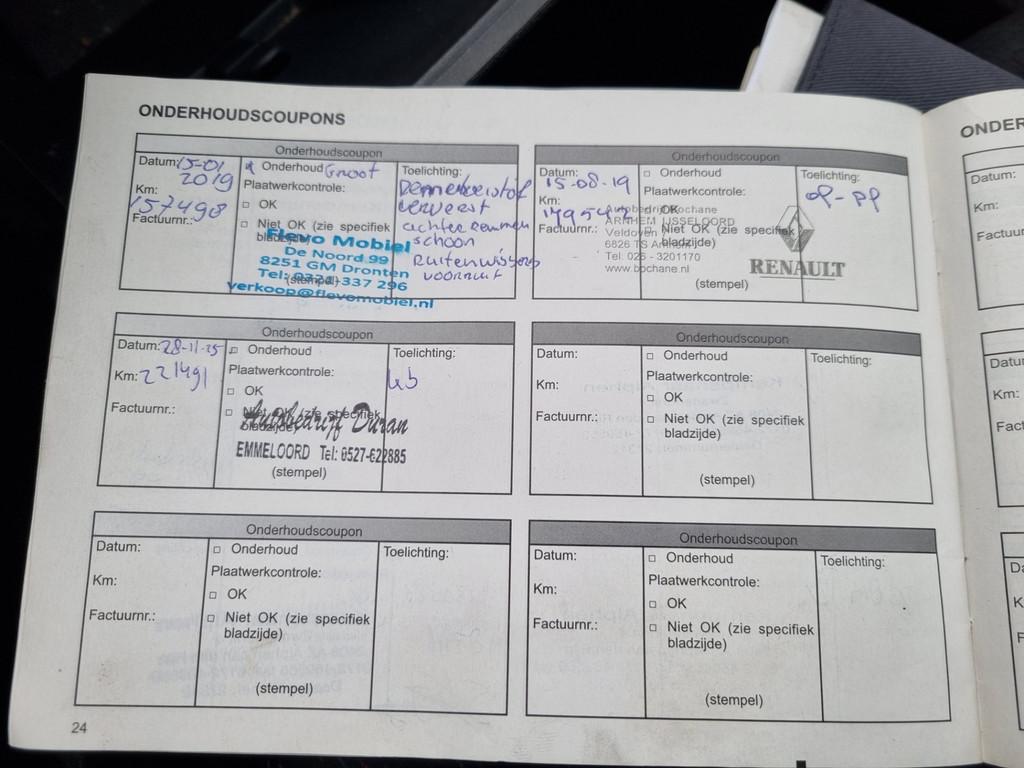 ONDERHOUDSCOUPONS
Onderhoudscoupon
Datum: 15-01
2019
Km:
157498
Factuurnr.:
x Onderhoud Groot
Plaatwerkcontrole:
OK
Niet OK (zie specifiek
bladzijde)
(stempel)
Flevo Mobiel
De Noord 99
8251 GM Dronten
Tel: 0321-337 296
verkoop@flevomobiel.nl
Toelichting:
ververst
achter remmen
schoon
Ruitenwissers
voorruit
Onderhoudscoupon
Datum:
15-08-19
Km:
Factuurnr.:
Onderhoud
Plaatwerkcontrole:
OK
Niet OK (zie specifiek
bladzijde)
(stempel)
Autobedrijf Bochane
ARNHEM IJSSELOORD
Veldoven
6826 TS Arnhem
Tel: 026 - 3201170
www.bochane.nl
RENAULT
Toelichting:
Onderhoudscoupon
Datum: 28-11-25
Km: 221491
Factuurnr.:
Onderhoud
Plaatwerkcontrole:
OK
Niet OK (zie specifiek
bladzijde)
Autobedrijf Duran
EMMELOORD Tel: 0527-622885
(stempel)
Toelichting:
Onderhoudscoupon
Datum:
Km:
Factuurnr.:
Onderhoud
Plaatwerkcontrole:
OK
Niet OK (zie specifiek
bladzijde)
(stempel)
Toelichting:
Onderhoudscoupon
Datum:
Km:
Factuurnr.:
Onderhoud
Plaatwerkcontrole:
OK
Niet OK (zie specifiek
bladzijde)
(stempel)
Toelichting:
Onderhoudscoupon
Datum:
Km:
Factuurnr.:
Onderhoud
Plaatwerkcontrole:
OK
Niet OK (zie specifiek
bladzijde)
(stempel)
Toelichting:
24
ONDER
Datum:
Km:
Factuu
Datum
Km:
Fact